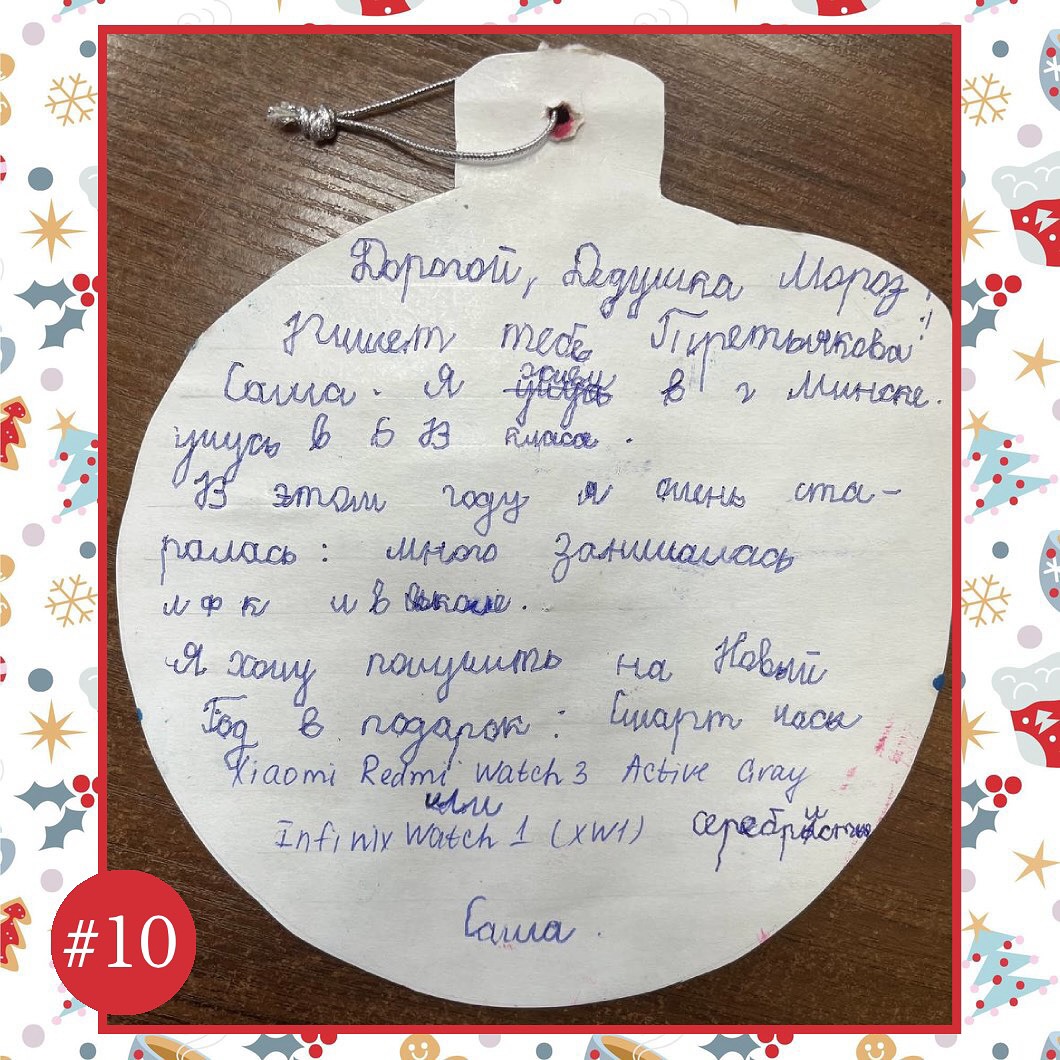 Дорогой, Дедушка Мороз!
Пишет тебе Третьякова
Саша. Я живу в г Минске.
учусь в 5 В классе.
В этом году я очень ста-
ралась: много занималась
лфк и в школе.
Я хочу получить на Новый
Год в подарок: Смарт часы
Xiaomi Redmi Watch 3 Active Gray
или
Infinix Watch 1 (XW1) серебристые
Саша.
#10